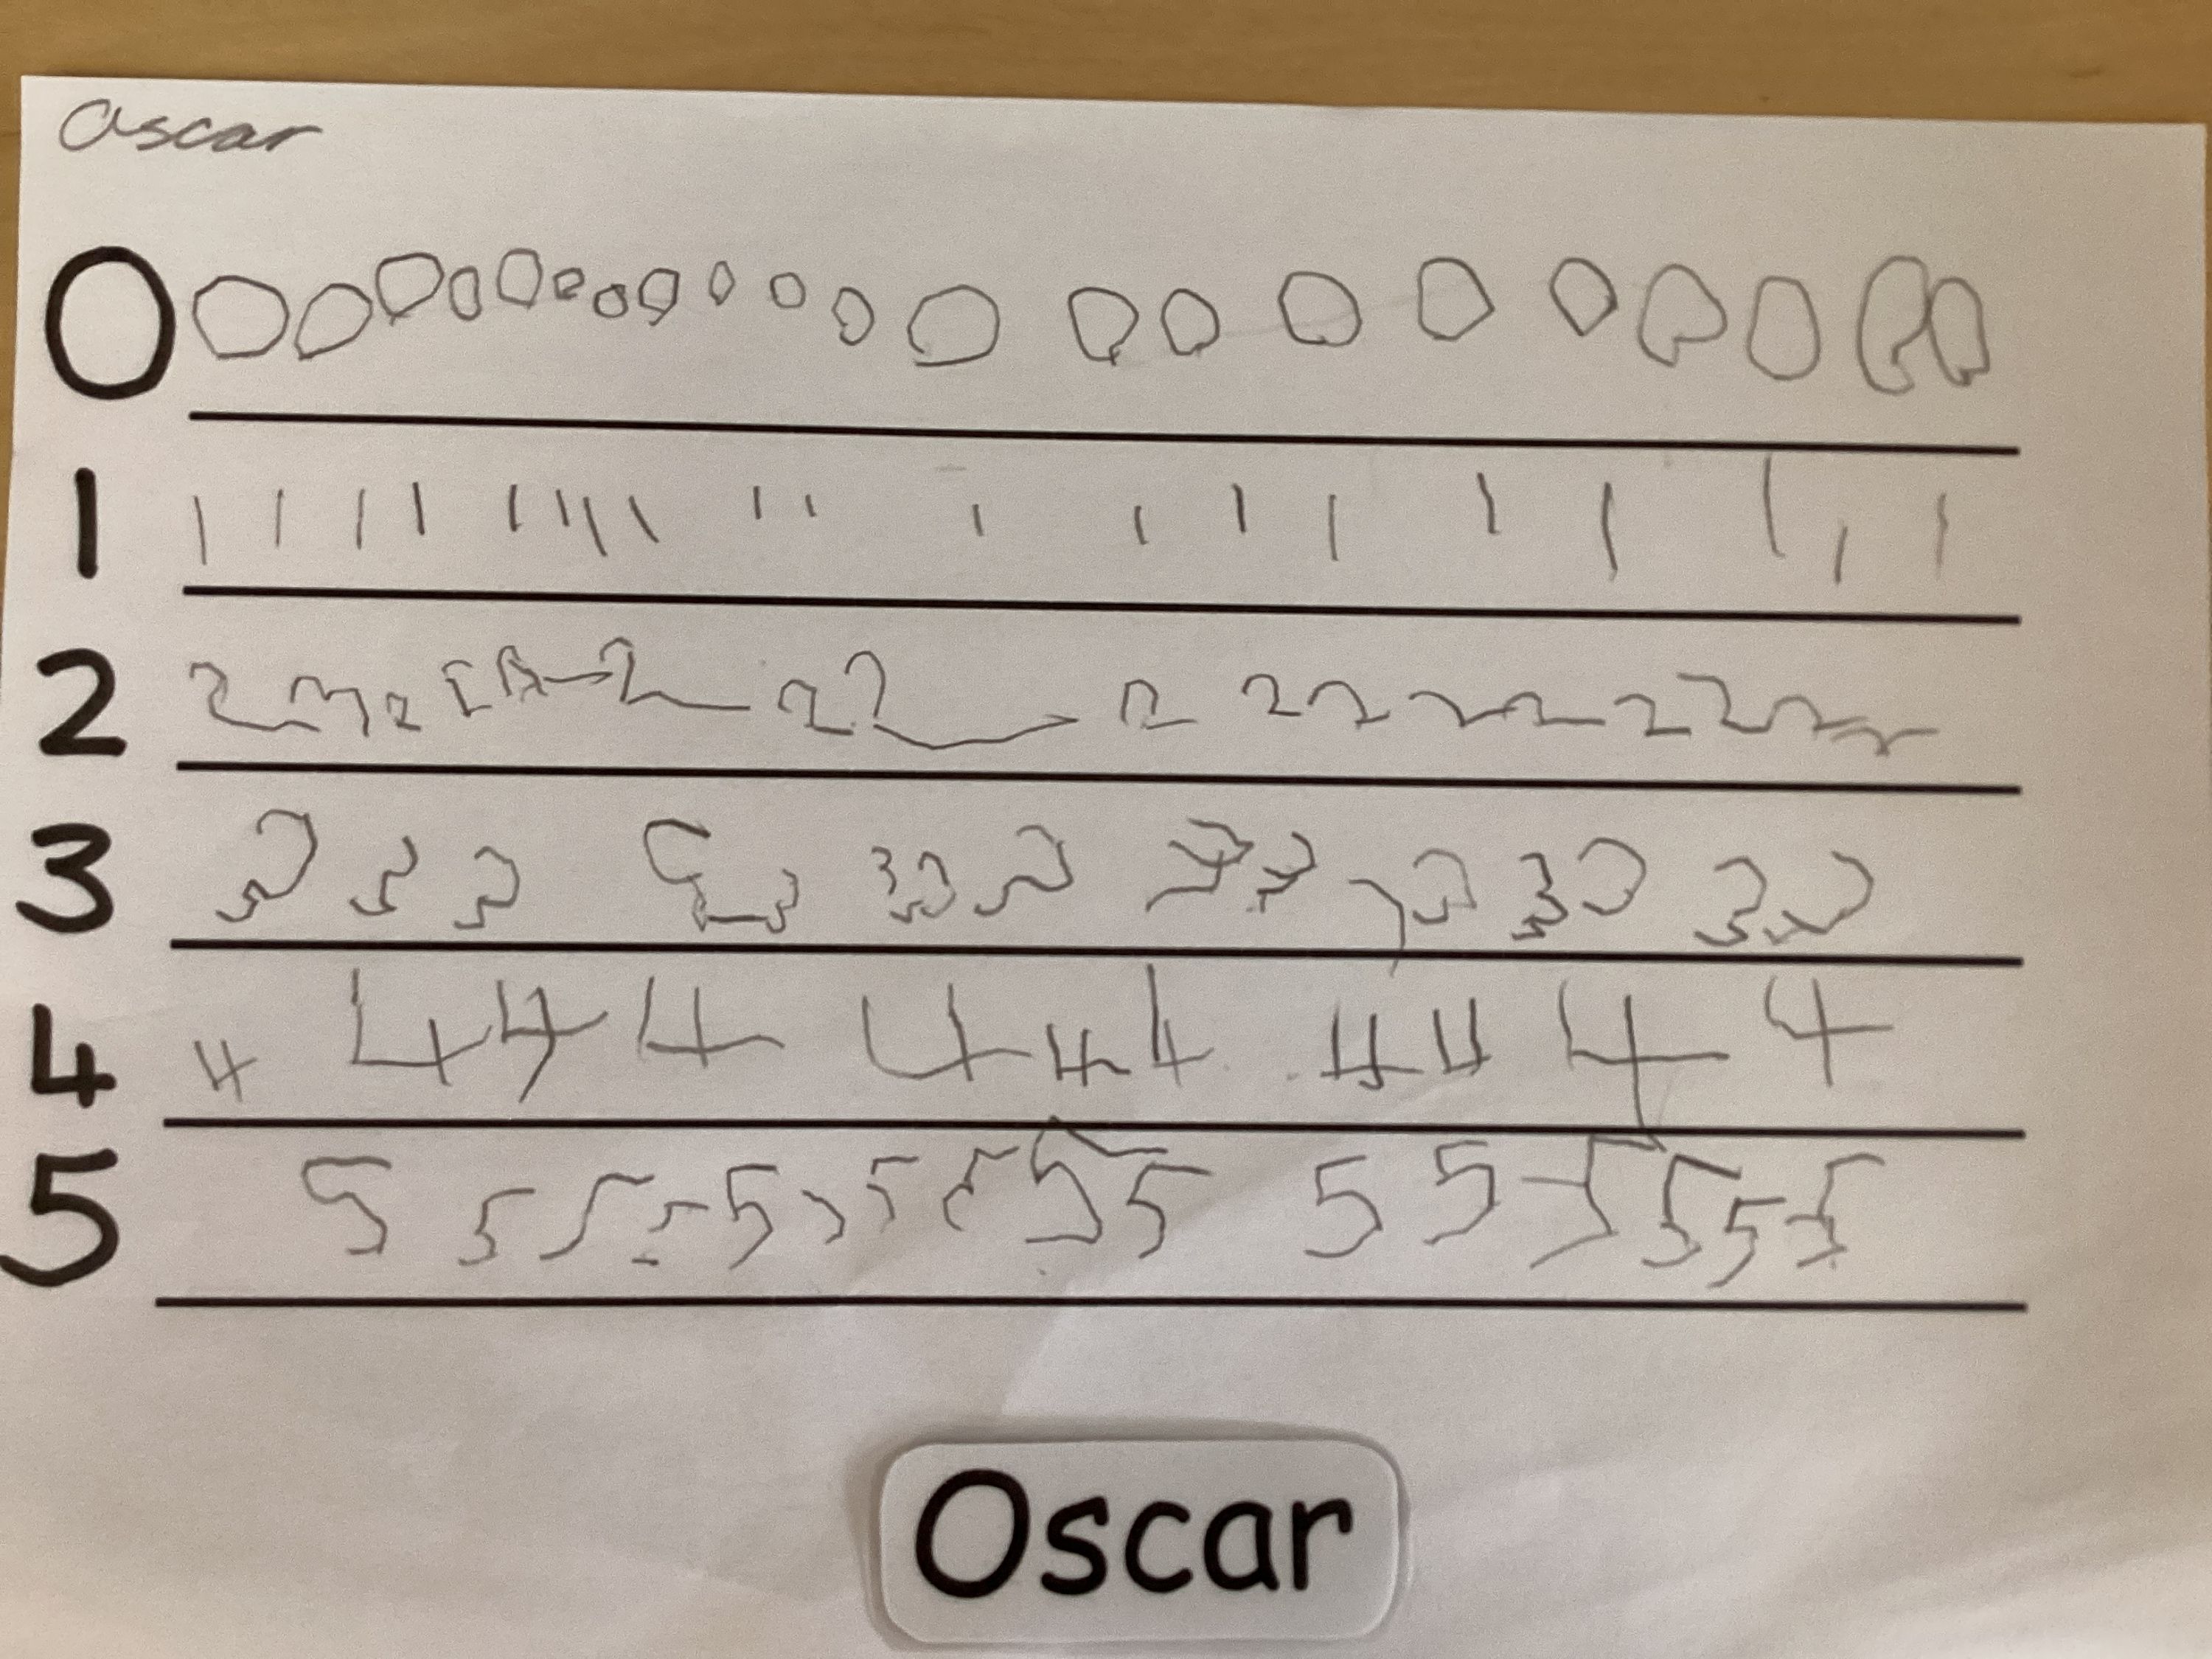 Oscar
0 0 0 0 0 0 0 0 0 0 0 0 0 0 0 0 0 0 0 0 0 0
1 1 1 1 1 1 1 1 1 1 1 1 1 1 1 1 1 1 1 1
2 2 2 2 2 2 2 2 2 2 2 2 2 2 2 2 2
3 3 3 3 3 3 3 3 3 3 3 3 3 3 3
4 4 4 4 4 4 4 4 4 4 4 4
5 5 5 5 5 5 5 5 5 5 5 5 5 5 5 5
Oscar